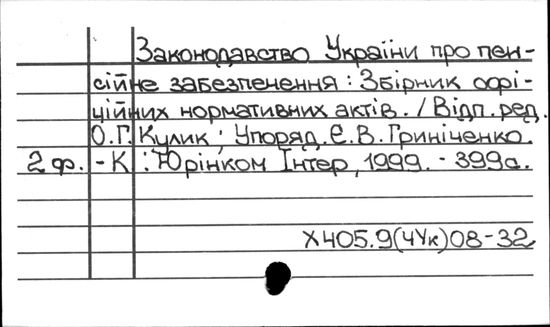 Законодавство України про пен-
сійне забезпечення : Збірник офі-
ційних нормативних актів. / Відп. ред.
О.Г. Кулик ; Упоряд. Є.В. Гриніченко.
2 ф. - К : Юрінком Інтер, 1999. - 399с.
Х405.9(4Ук)08-32